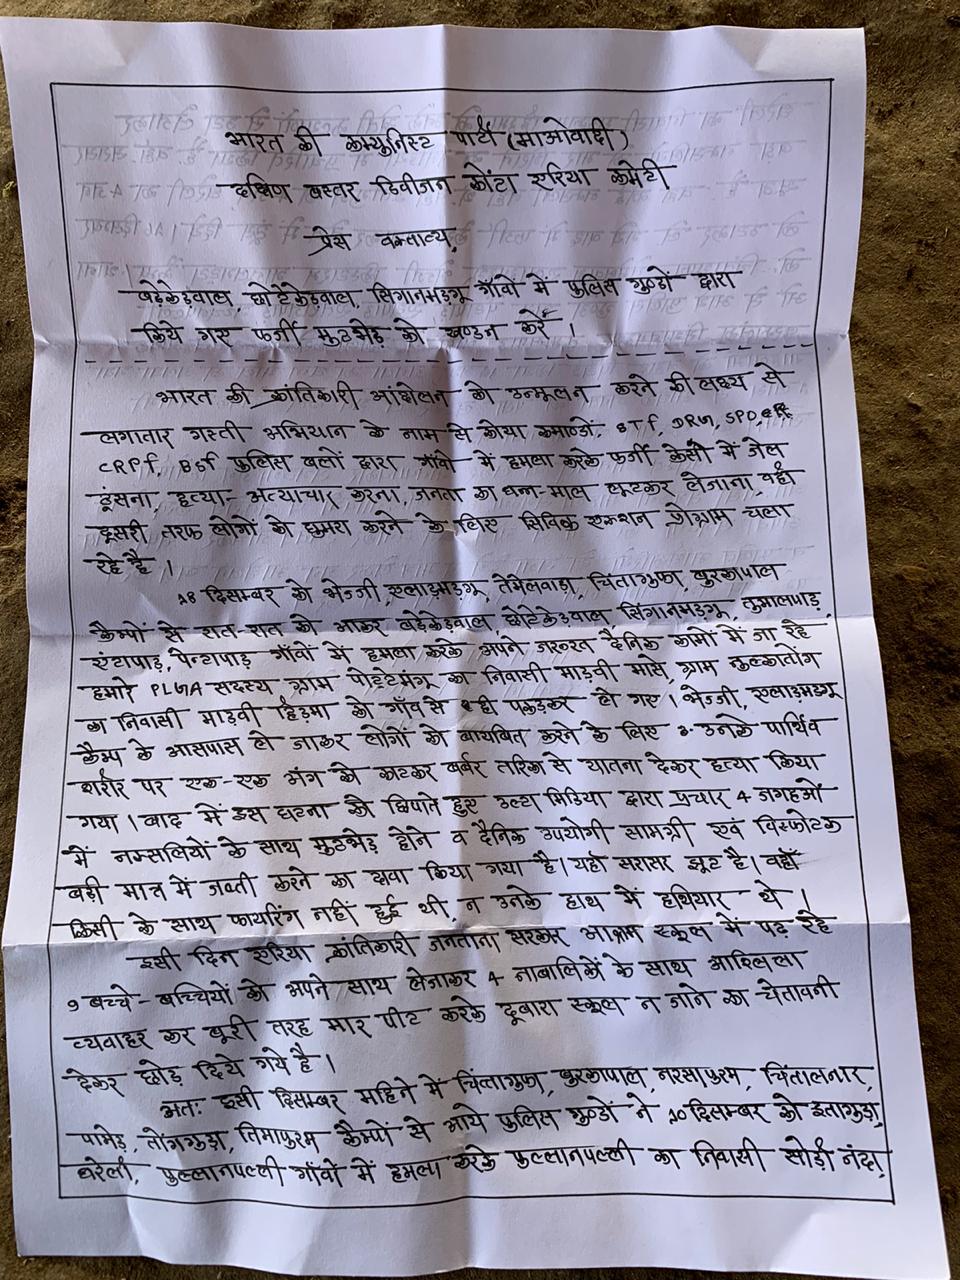 भारत की कम्युनिस्ट पार्टी (माओवादी)
दक्षिण बस्तर डिवीजन कोंटा एरिया कमेटी
प्रेस वक्तव्य,
बड़ेकेड़वाल, छोटेकेड़वाल, सिंगानमड़गू गाँवों में पुलिस गुण्डों द्वारा
किये गए फर्जी मुटभेड़ को खण्डन करें ।
भारत की क्रांतिकारी आंदोलन को उन्मूलन करने की लक्ष्य से
लगातार गस्ती अभियान के नाम से कोया कमाण्डो, STF, DRG, SPO,
CRPF, BSF पुलिस बलों द्वारा गाँवों में हमला करके फर्जी केसों में जेल
ठूंसना, हत्या-अत्याचार करना, जनता का धन-माल लूटकर लेजाना, वहीं
दूसरी तरफ लोगों को घुमरा करने के लिए सिविक एक्शन प्रोग्राम चला
रहे है ।
18 दिसम्बर को भेज्जी, एलाड़मड़गू, तेमेलवाड़ा, चिंतागुफा, बुरकापाल
कैम्पों से रात-रात को आकर बड़ेकेड़वाल, छोटेकेड़वाल, सिंगानमड़गू, तुमालपाड़,
एंटापाड़, पेन्टापाड़ गाँवों में हमला करके अपने जरूरत दैनिक कामों में जा रहे
हमारे PLGA सदस्य, ग्राम पोट्टेमंगू का निवासी माड़वी मासे, ग्राम कुल्कातोंग
का निवासी माड़वी हिड़मा को गाँव से ही पकड़कर ले गए । भेज्जी, एलाड़मड़गू
कैम्प के आसपास ले जाकर लोगों को बायबित करने के लिए उनके पार्थिव
शरीर पर एक-एक अंग को काटकर बर्बर तरिके से यातना देकर हत्या किया
गया । बाद में इस घटना को छिपाते हुए उल्टा मिडिया द्वारा प्रचार 4 जगहओं
में नक्सलियों के साथ मुटभेड़ होने व दैनिक उपयोगी सामग्री एवं विस्फोटक
बड़ी मात्र में जब्ती करने का दावा किया गया है। यहाँ सरासर झूट है। वहाँ
किसी के साथ फायरिंग नहीं हुई थी, न उनके हाथ में हथियार थे ।
इसी दिन एरिया क्रांतिकारी जनताना सरकार आश्रम स्कूल में पढ़ रहे
9 बच्चे-बच्चियों को अपने साथ लेजाकर 4 नाबालिकों के साथ आश्लिला
व्यवाहर कर बूरी तरह मार पीट करके दूबारा स्कूल न जाने का चेतावनी
देकर छोड़ दिये गये है ।
अतः इसी दिसम्बर महिने में चिंतागुफा, बुरकापाल, नरसापुरम, चिंतालनार,
पामेड़, तोंगगुड़ा, तिमापुरम कैम्पों से आये पुलिस गुण्डों ने 20 दिसम्बर को इतागुड़ा,
धरेली, पुल्लानपल्ली गाँवों में हमला करके पुल्लानपल्ली का निवासी सोड़ी नंदा,